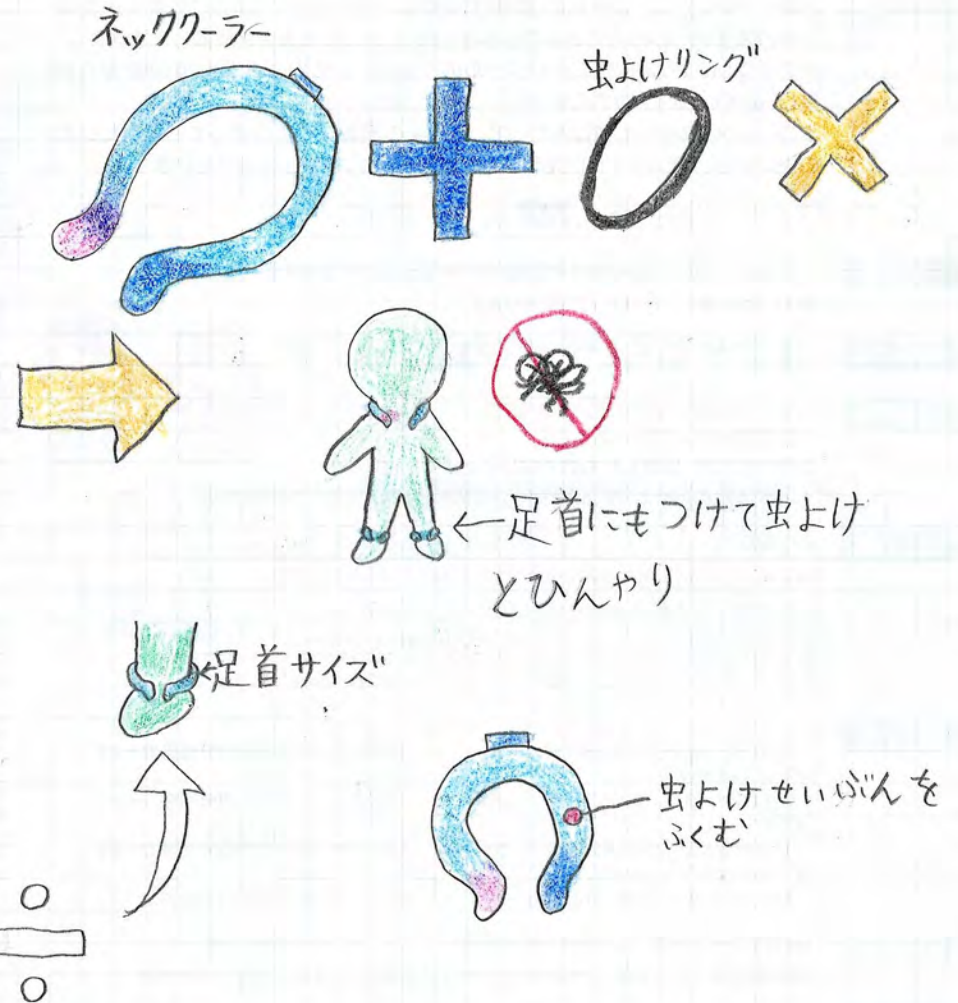 ネッククーラー
虫よけリング
←足首にもつけて虫よけ
とひんやり
←足首サイズ
虫よけせいぶんを
ふくむ